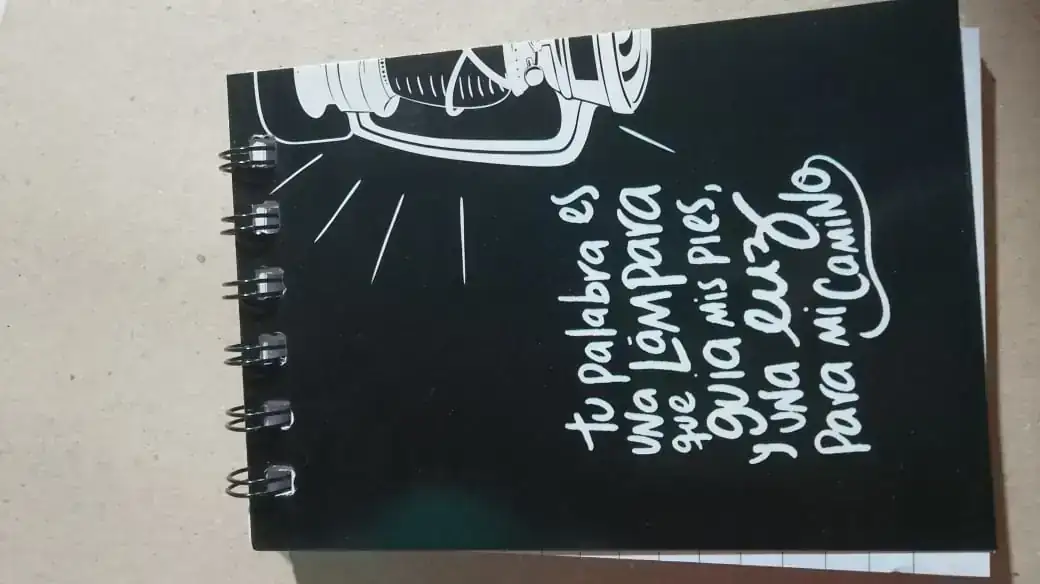 tu palabra es
una Lámpara
que guía mis pies,
y una luz
para mi camino